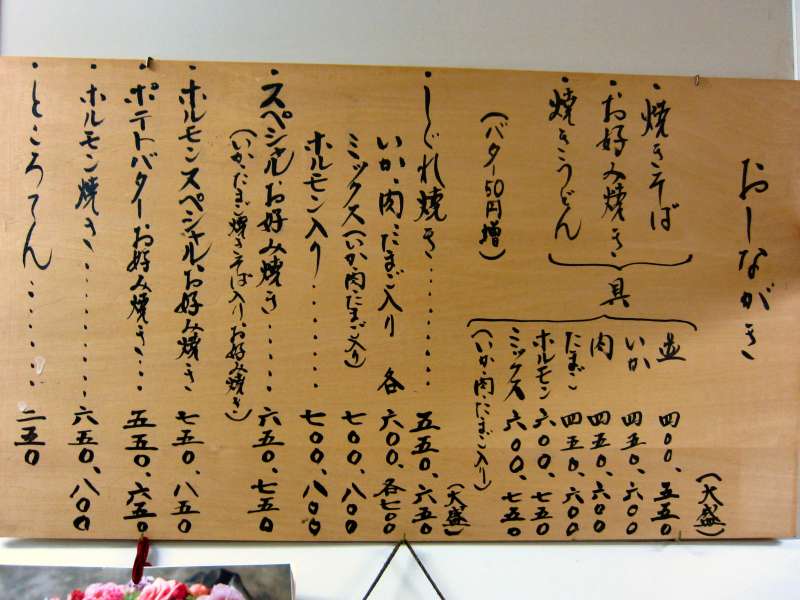 おしながき
・焼きそば
・お好み焼き
・焼きうどん
(バター50円増)
具
(大盛)
並 四〇〇、五五〇
いか 四五〇、六〇〇
肉 四五〇、六〇〇
たまご 四五〇、六〇〇
ホルモン 六〇〇、七五〇
ミックス 六〇〇、七五〇
(いか・肉・たまご入り)
(大盛)
・しぐれ焼き......... 五五〇、六五〇
いか、肉、たまご入り 各 六〇〇、各七〇〇
ミックス(いか・肉・たまご入り) 七〇〇、八〇〇
ホルモン入り...... 七〇〇、八〇〇
・スペシャルお好み焼き...... 六五〇、七五〇
(いか、たまご焼きそば入りお好み焼き)
・ホルモンスペシャルお好み焼き 七五〇、八五〇
・ポテトバターお好み焼き... 五五〇、六五〇
・ホルモン焼き......... 六五〇、八〇〇
・ところてん...... 二五〇